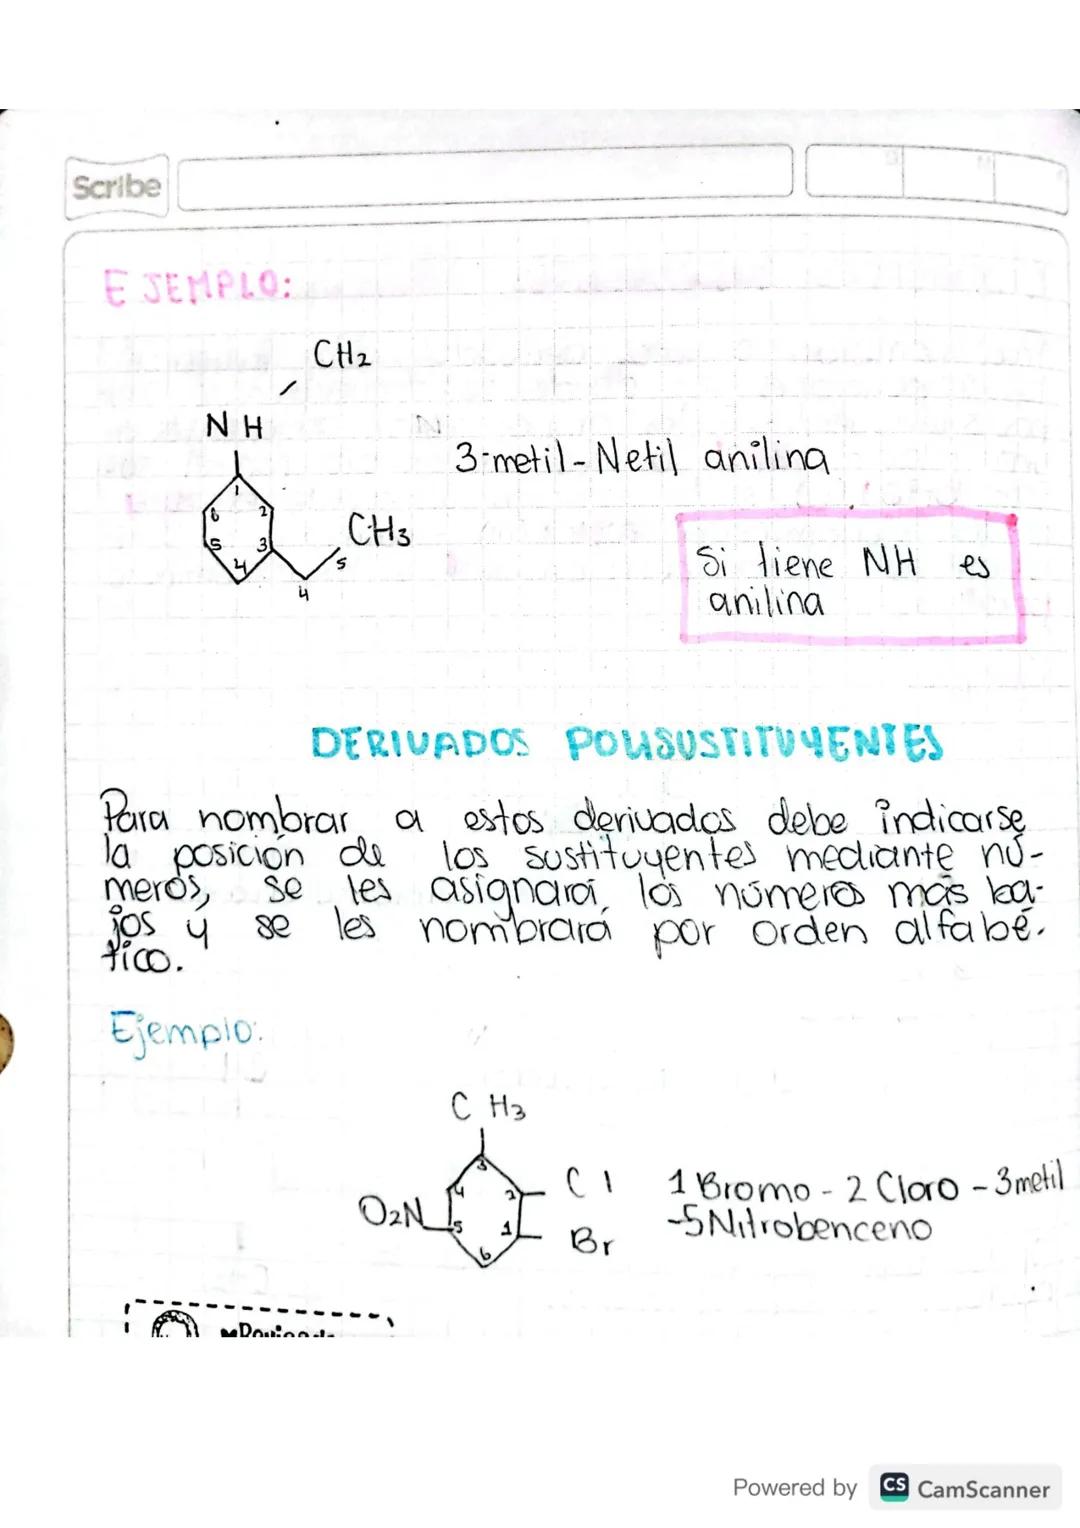 Scribe
EJEMPLO:
CH2
NH
1
6
2
5
3
4
CH3
5
4
3-metil-Netil anilina
Si tiene NH es
anilina
DERIVADOS POLISUSTITUYENTES
Para nombrar a estos derivados debe indicarse
la posición de los sustituyentes mediante nú-
meros, se les asignará los números más ba-
jos y se les nombrará por orden alfabé-
tico.
Ejemplo:
CH3
3
4
2
Cl
O2N
5
1
Br
6
1 Bromo - 2 Cloro - 3 metil
-5 Nitrobenceno
Powered by CS CamScanner